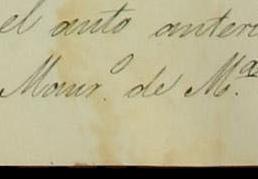 el auto anteri
Maur.º de M.ª